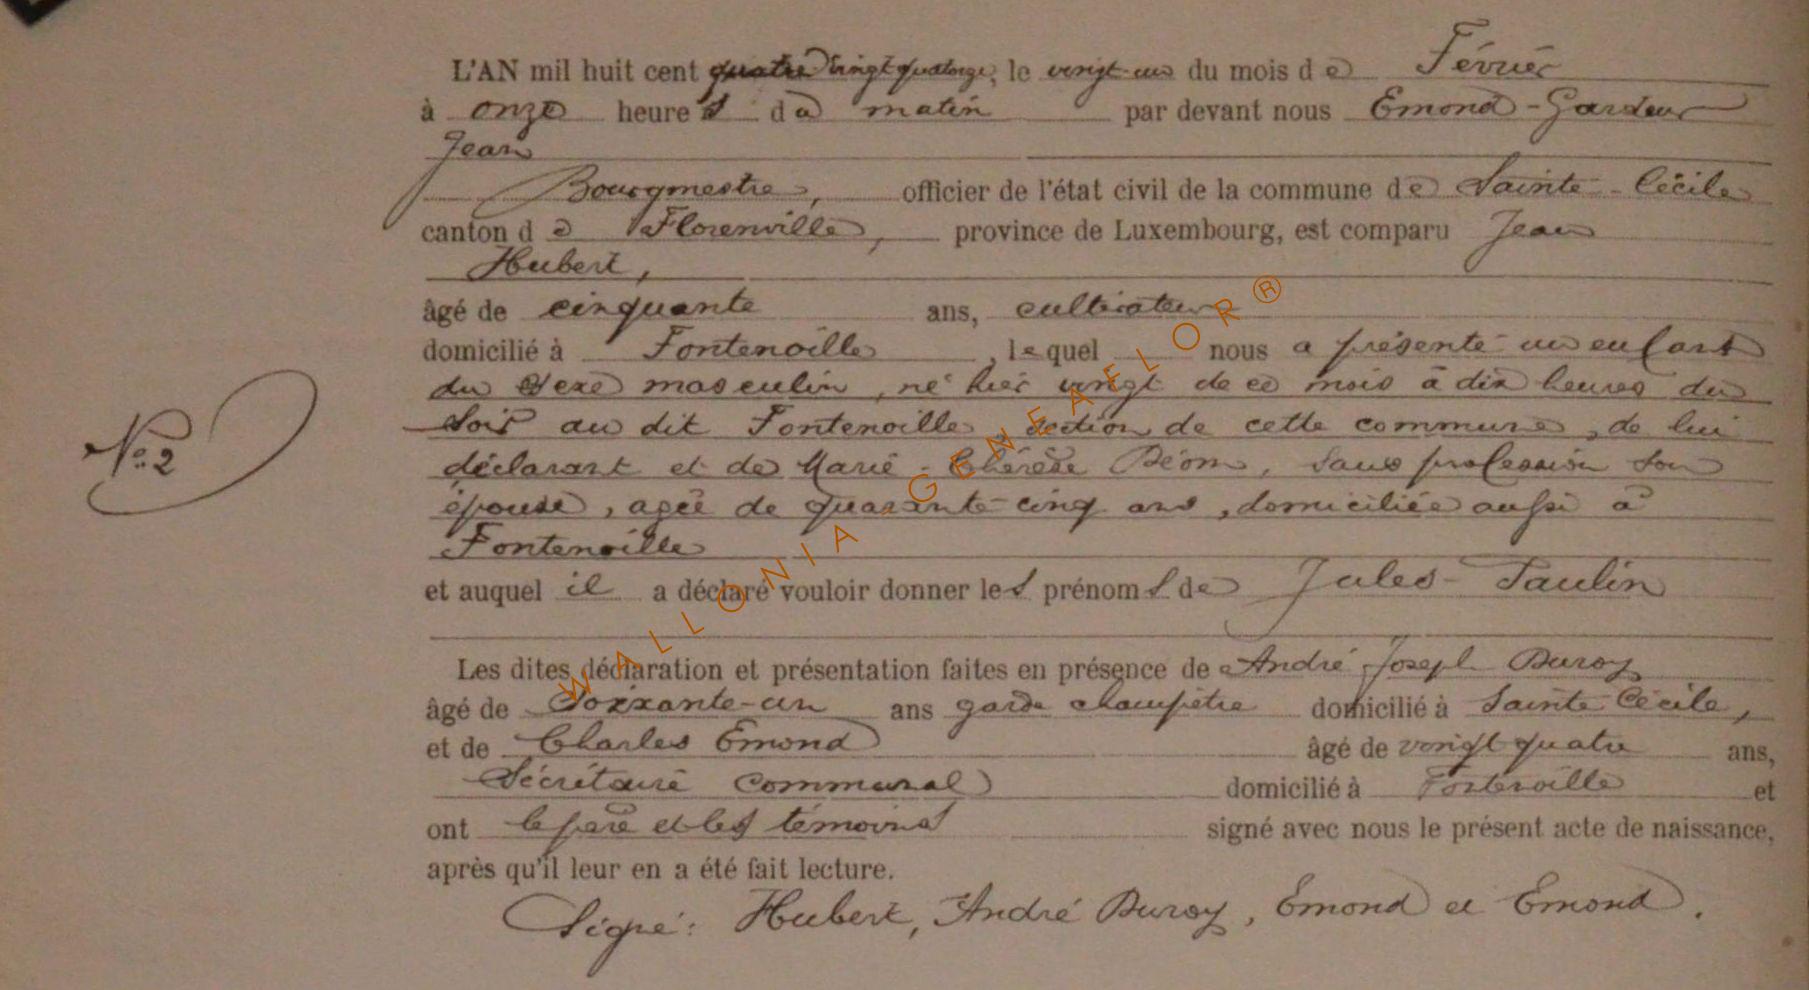 L'AN mil huit cent quatre vingt quatorze, le vingt-un du mois de Février
à onze heures du matin par devant nous Emond-Gardeur
Jean
Bourgmestre, officier de l'état civil de la commune de Sainte-Cécile
canton de Florenville, province de Luxembourg, est comparu Jean
Hubert,
âgé de cinquante ans, cultivateur
domicilié à Fontenoille, lequel nous a présenté un enfant
du sexe masculin, né hier vingt de ce mois à dix heures du
No 2
soir au dit Fontenoille, section de cette commune, de lui
déclarant et de Marie-Thérèse Déom, sans profession son
épouse, agée de quarante-cinq ans, domiciliée aussi à
Fontenoille
et auquel il a déclaré vouloir donner les prénoms de Jules-Paulin
Les dites déclaration et présentation faites en présence de André Joseph Duroy
âgé de Soixante-un ans garde champêtre domicilié à Sainte Cécile,
et de Charles Emond âgé de vingt quatre ans,
Sécrétaire communal domicilié à Fontenoille et
ont le père et les témoins signé avec nous le présent acte de naissance,
après qu'il leur en a été fait lecture.
Signé: Hubert, André Duroy, Emond et Emond.
WALLONIA-GENEAFLOR®